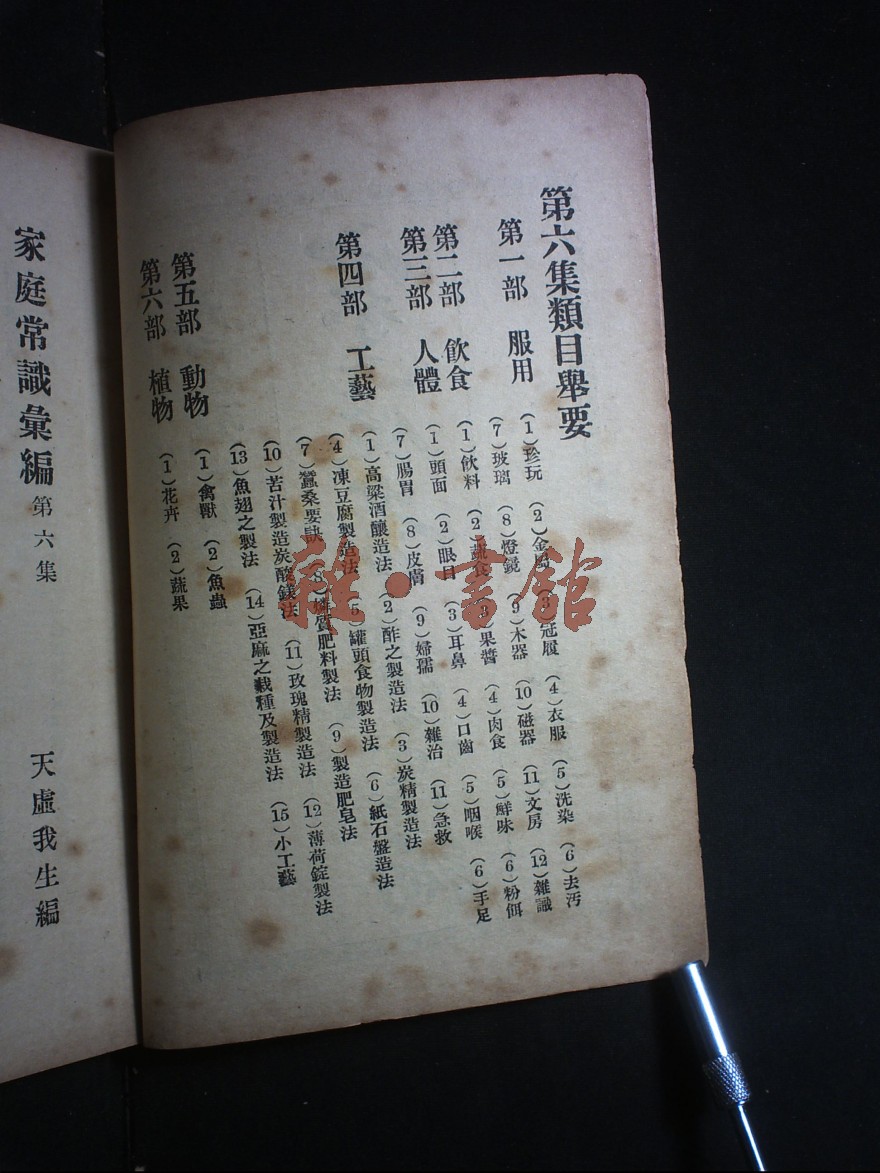 第六集類目舉要
第一部 服用 (1)珍玩 (2)金屬 (3)冠履 (4)衣服 (5)洗染 (6)去汚
(7)玻璃 (8)燈鏡 (9)木器 (10)磁器 (11)文房 (12)雜識
第二部 飲食 (1)飲料 (2)蔬食 (3)果醬 (4)肉食 (5)鮮味 (6)粉餌
第三部 人體 (1)頭面 (2)眼目 (3)耳鼻 (4)口齒 (5)咽喉 (6)手足
(7)腸胃 (8)皮膚 (9)婦孺 (10)雜治 (11)急救
第四部 工藝 (1)高粱酒釀造法 (2)酢之製造法 (3)炭精製造法
(4)凍豆腐製造法 (5)罐頭食物製造法 (6)紙石盤造法
(7)蠶桑要訣 (8)燐質肥料製法 (9)製造肥皂法
(10)苦汁製造炭酸鎂法 (11)玫瑰精製造法 (12)薄荷錠製法
(13)魚翅之製法 (14)亞麻之栽種及製造法 (15)小工藝
第五部 動物 (1)禽獸 (2)魚蟲
第六部 植物 (1)花卉 (2)蔬果
家庭常識彙編 第六集 天虛我生編
雜·書館